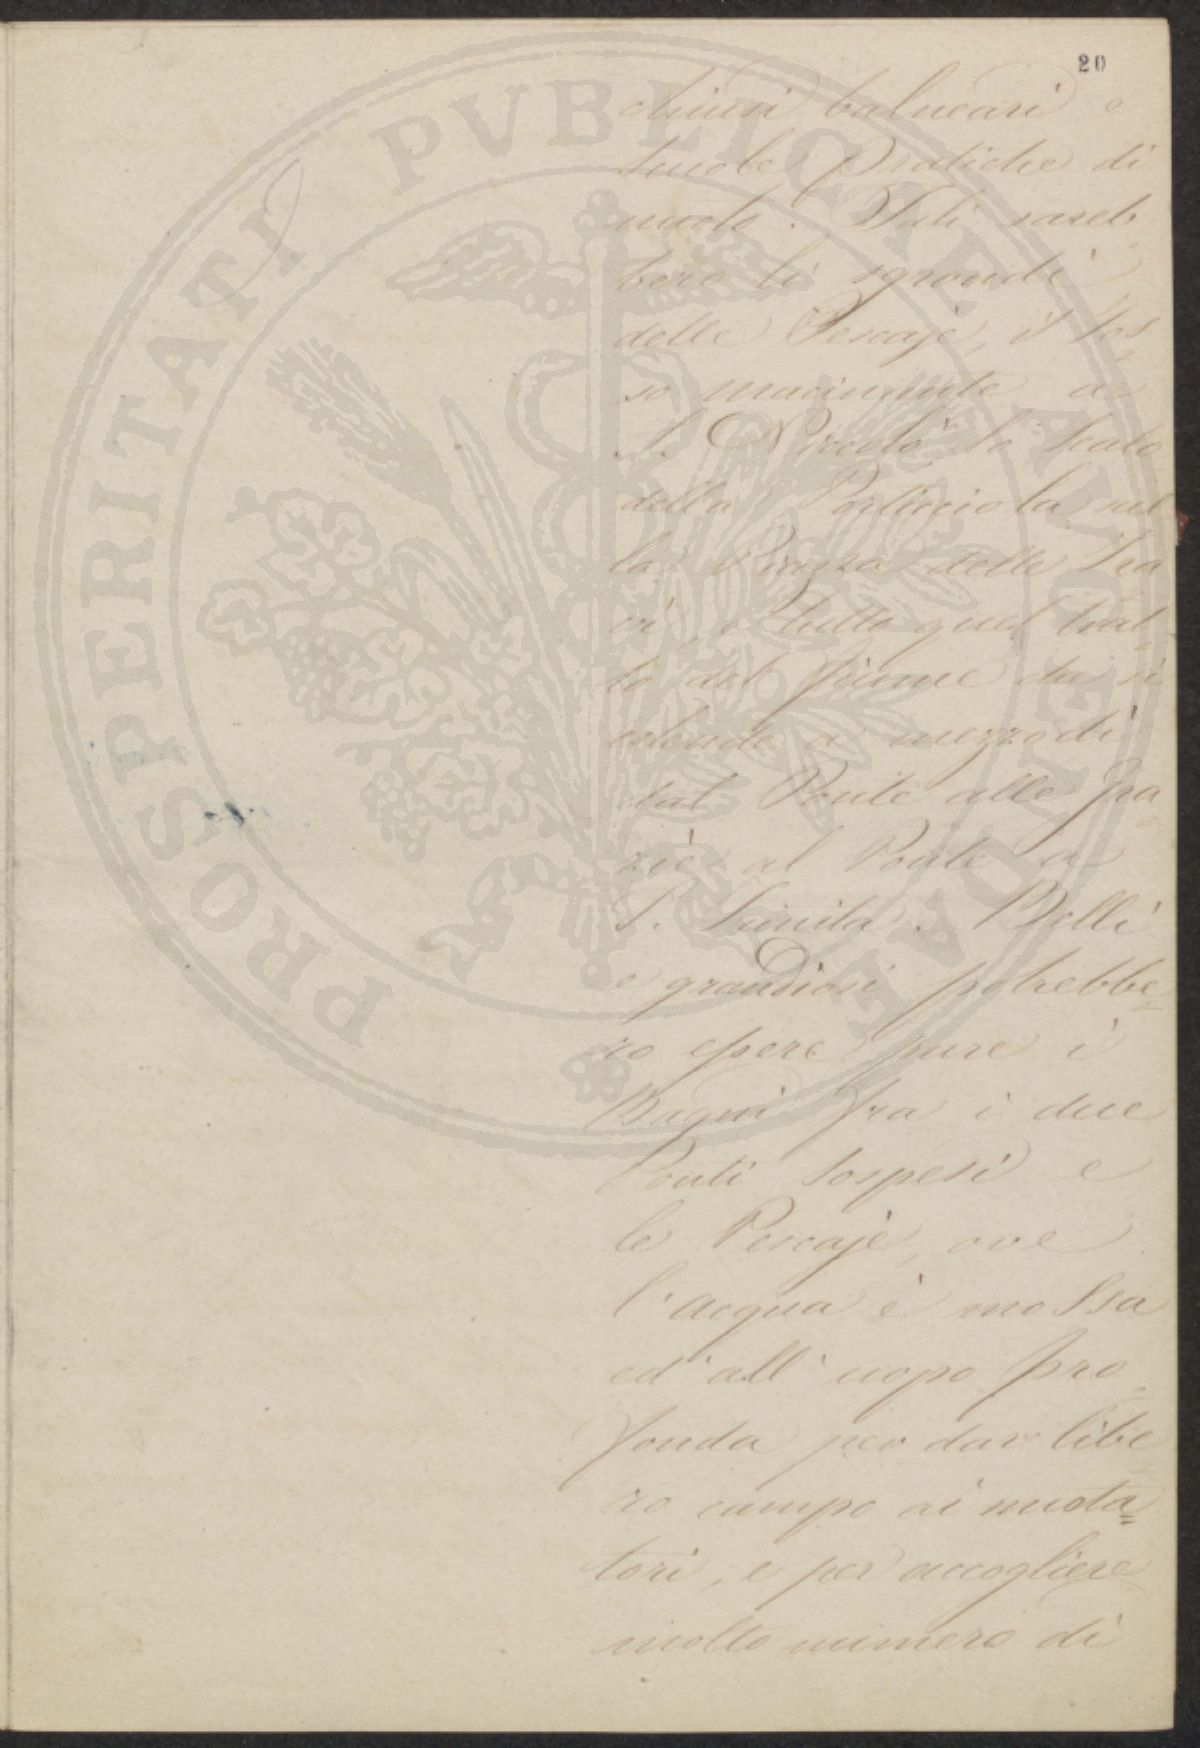 20
chiusi balneari e
scuole pratiche di
nuoto. Tali sareb
bero li sgrondi
delle Pescaje, il Fos
so macinante a
S. Niccolò, lo scalo
della Porticciola nel
la Piazza delle Tra
vi, e tutto quel trat
to del fiume che si
estende a mezzodì
dal Ponte alle Gra
zie al Ponte a
S. Trinita. Belli
e grandiosi potrebbe
ro essere pure i
Bagni fra i due
Ponti sospesi e
le Pescaje, ove
l'acqua è mossa
ed all'uopo pro
fonda per dar libe
ro campo ai nuota=
tori, e per accogliere
molto numero di
PROSPERITATI PVBLICAE AVGENDAE